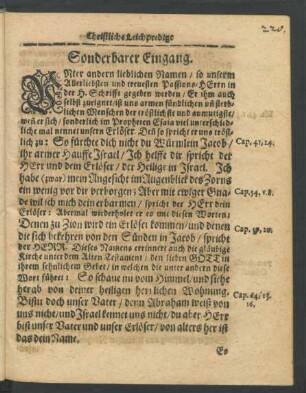 Christliche Leichpredigt
220.
Sonderbarer Eingang.
UNter andern lieblichen Namen / so unserm
Allerliebsten und treuesten Passions-HErrn in
der H. Schrifft gegeben werden / Er ihm auch
selbst zueignet / ist uns armen sündlichen un̄ sterb-
lichen Menschen der tröstlichste und anmutigste /
wen̄ er sich / sonderlich im Propheten Esaia viel unterschied-
liche mal nennet unsern Erlöser. Deñ so spricht er uns tröst-
lich zu: So fürchte dich nicht du Würmlein Jacob /
ihr armer Hauffe Israel / Ich helffe dir spricht der
HErr und dein Erlöser / der Heilige in Israel. Ich
habe (zwar) mein Angesicht im Augenblick des Zorns
ein wenig vor dir verborgen: Aber mit ewiger Gna-
de wil ich mich dein erbarmen / spricht der HErr dein
Erlöser: Abermal wiederholet er es mit diesen Worten /
Denen zu Zion wird ein Erlöser kommen / und denen
die sich bekehren von den Sünden in Jacob / spricht
der HERR. Dieses Namens erinnert sich die gläubige
Kirche unter dem Alten Testament / den lieben GOTT in
ihrem sehnlichem Gebet / in welchem sie unter andern diese
Wort führet: So schaue nu vom Himmel / und siehe
herab von deiner heiligen herrlichen Wohnung.
Bistu doch unser Vater / denn Abraham weiß von
uns nicht / und Israel kennet uns nicht / du aber HErr
bist unser Vater und unser Erlöser / von alters her ist
das dein Name.
Cap. 41, 14.
Cap. 54, v. 8.
Cap. 59, 20.
Cap. 64 / 15.
16.
Es